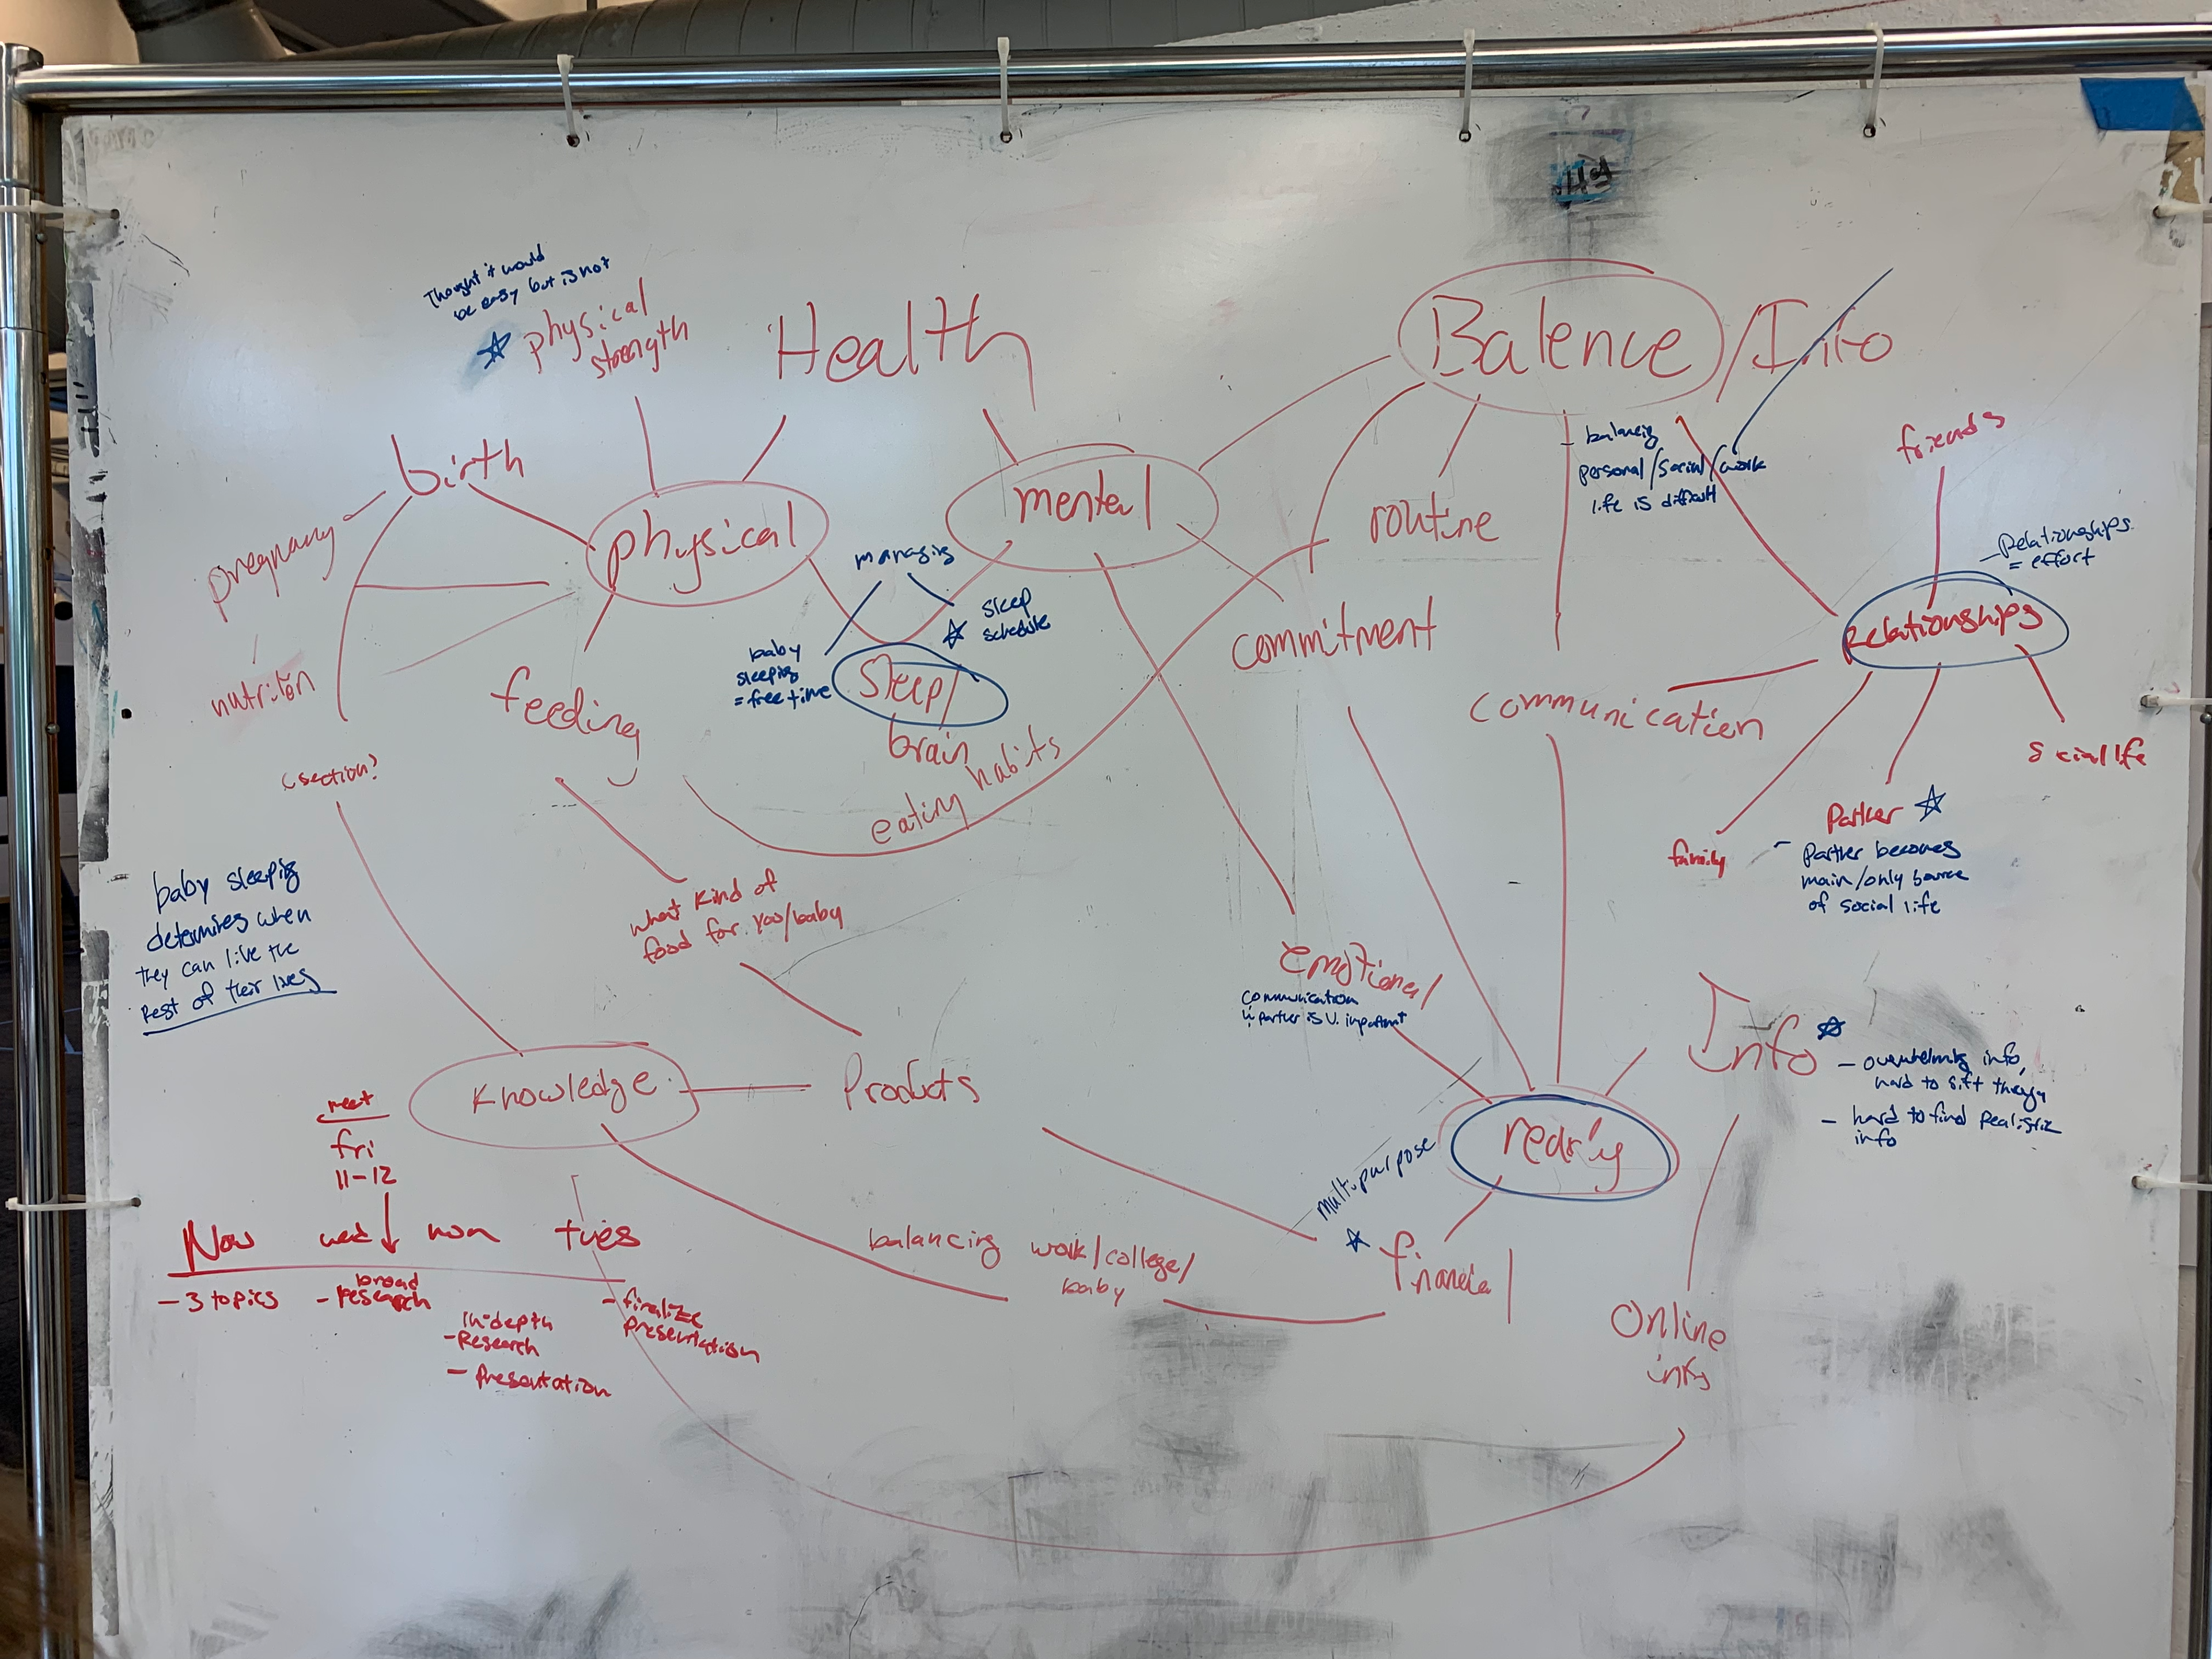 Thought it would
be easy but is not
physical
strength
Health
Balence/Info
birth
physical
mental
routine
- balancig
personal/social/work
life is difficult
friends
- Relationships
= effort
Relationships
pregnancy
nutrition
csection?
feeding
managing
sleep
schedule
baby
sleeping
= free time
Sleep/
brain
eating habits
commitment
communication
social life
family
Partner
- Partner becomes
main/only source
of social life
baby sleeping
determines when
they can live the
Rest of their lives
what kind of
food for you/baby
Products
Knowledge
emotional
communication
w partner is v. important
Info
- overwhelming info,
hard to sift through
- hard to find Realistic
info
multipurpose
financial
Online
info
balancing work/college/
baby
meet
fri
11-12
Now wed mon tues
- 3 topics
- broad
research
in-depth
- Research
- Presentation
- finalize
presentation